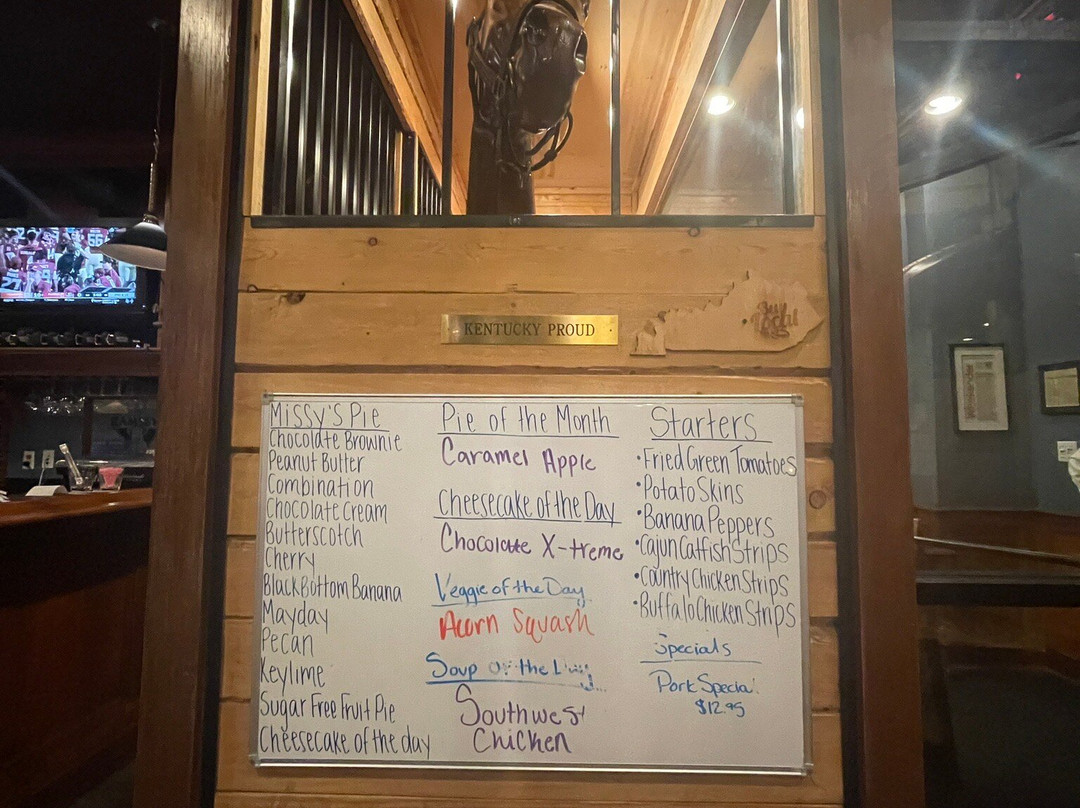 KENTUCKY PROUD
Missy's Pie
Chocolate Brownie
Peanut Butter
Combination
Chocolate Cream
Butterscotch
Cherry
Black Bottom Banana
Mayday
Pecan
Keylime
Sugar Free Fruit Pie
Cheesecake of the day
Pie of the Month
Caramel Apple
Cheesecake of the Day
Chocolate X-treme
Veggie of the Day
Acorn Squash
Soup of the Day
Southwest
Chicken
Starters
•Fried Green Tomatoes
•Potato Skins
•Banana Peppers
•Cajun Catfish Strips
•Country Chicken Strips
•Buffalo Chicken Strips
Specials
Pork Special
$12.95